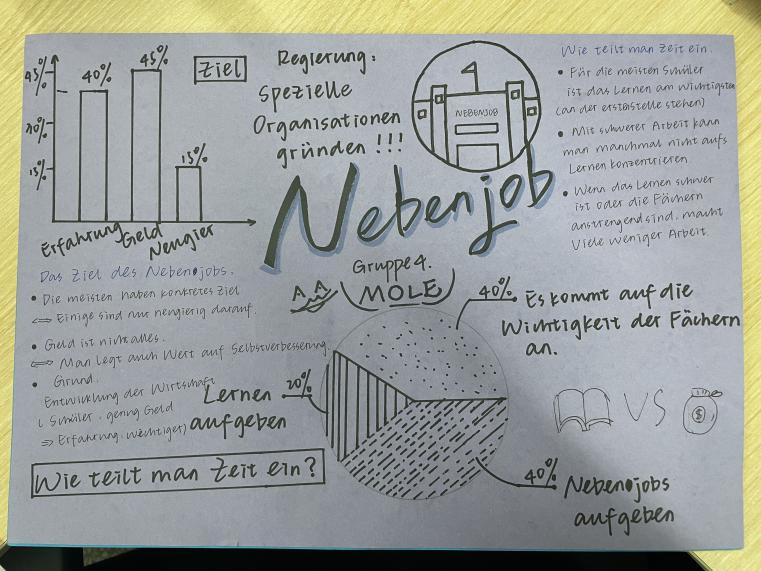 45%
30%
15%
40%
45%
15%
Ziel
Erfahrung Geld Neugier
Regierung:
Spezielle
Organisationen
gründen !!!
NEBENJOB
Nebenjob
Gruppe 4.
MOLE
Wie teilt man Zeit ein.
• Für die meisten Schüler
ist das Lernen am wichtigsten
(an der ersten stelle stehen)
• Mit schwerer Arbeit kann
man manchmal nicht aufs
Lernen konzentrieren
• Wenn das Lernen schwer
ist oder die Fächern
anstrengend sind, macht
Viele weniger Arbeit.
Das Ziel des Nebenjobs.
• Die meisten haben konkretes Ziel
⇔ Einige sind nur neugierig darauf.
• Geld ist nicht alles.
⇔ Man legt auch Wert auf Selbstverbesserung.
• Grund.
Entwicklung der Wirtschaft
Schüler, genug Geld
⇒ Erfahrung, wichtiger)
Wie teilt man Zeit ein?
40% Es kommt auf die
Wichtigkeit der Fächern
an.
Lernen 20%
aufgeben
40% Nebenjobs
aufgeben
VS
$